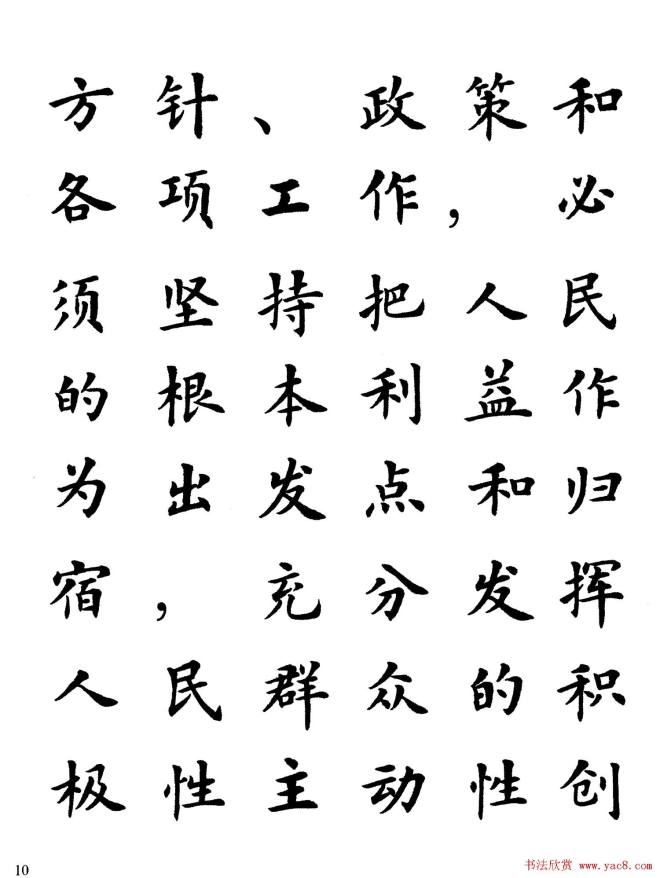 方针、政策和
各项工作，必
须坚持把人民
的根本利益作
为出发点和归
宿，充分发挥
人民群众的积
极性主动性创
10
书法欣赏 www.yac8.com